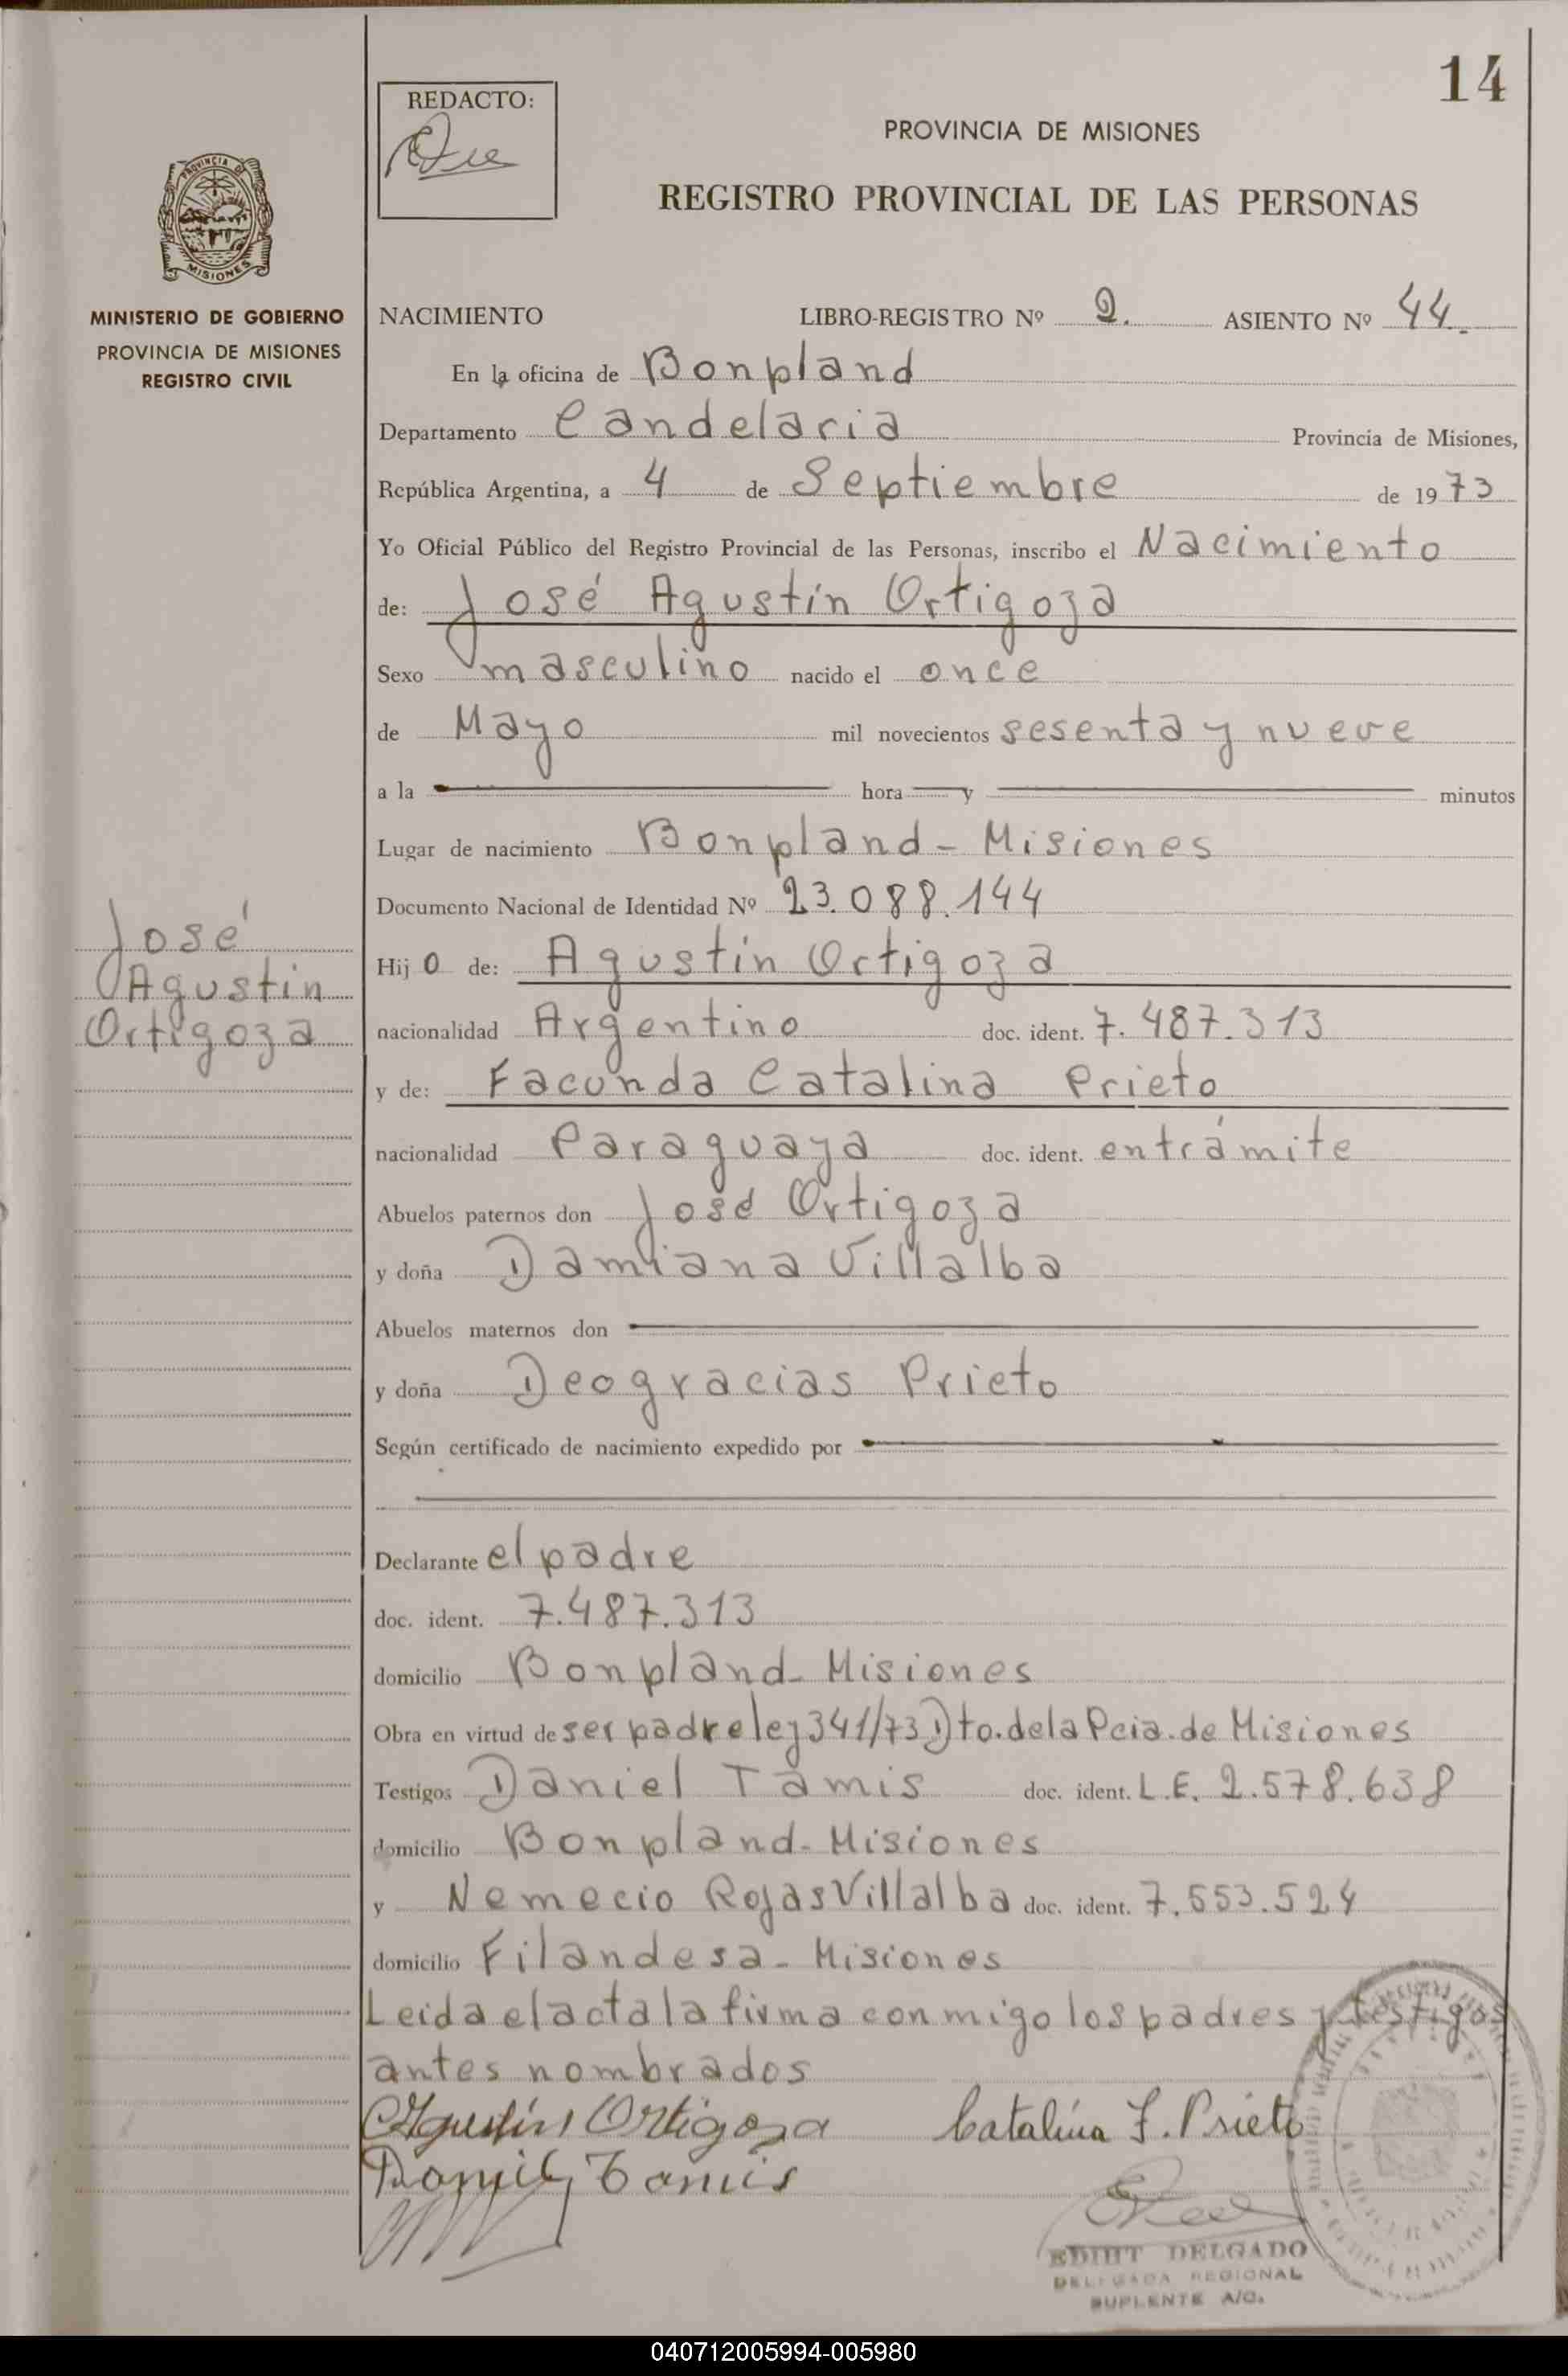 14
REDACTO:
PROVINCIA DE MISIONES
REGISTRO PROVINCIAL DE LAS PERSONAS
PROVINCIA DE
MISIONES
MINISTERIO DE GOBIERNO
PROVINCIA DE MISIONES
REGISTRO CIVIL
NACIMIENTO LIBRO-REGISTRO Nº 2. ASIENTO Nº 44.
En la oficina de Bonpland
Departamento Candelaria Provincia de Misiones,
República Argentina, a 4 de Septiembre de 1973
Yo Oficial Público del Registro Provincial de las Personas, inscribo el Nacimiento
de: José Agustín Ortigoza
Sexo masculino nacido el once
de Mayo mil novecientos sesenta y nueve
a la hora y minutos
Lugar de nacimiento Bonpland - Misiones
Documento Nacional de Identidad Nº 23.088.144
José
Agustin
Ortigoza
Hijo de: Agustín Ortigoza
nacionalidad Argentino doc. ident. 7.487.313
y de: Facunda Catalina Prieto
nacionalidad Paraguaya doc. ident. entrámite
Abuelos paternos don José Ortigoza
y doña Damiana Villalba
Abuelos maternos don
y doña Deogracias Prieto
Según certificado de nacimiento expedido por
Declarante el padre
doc. ident. 7.487.313
domicilio Bonpland - Misiones
Obra en virtud de ser padre ley 341/73 Dto. de la Pcia. de Misiones
Testigos Daniel Tamis doc. ident. L.E. 2.578.638
domicilio Bonpland - Misiones
y Nemecio Rojas Villalba doc. ident. 7.553.524
domicilio Filandesa - Misiones
Leida el acta la firma conmigo los padres y testigos
antes nombrados
Agustín Ortigoza Catalina F. Prieto
Daniel Tamis
EDIHT DELGADO
DELEGADA REGIONAL
SUPLENTE A/C.
040712005994-005980